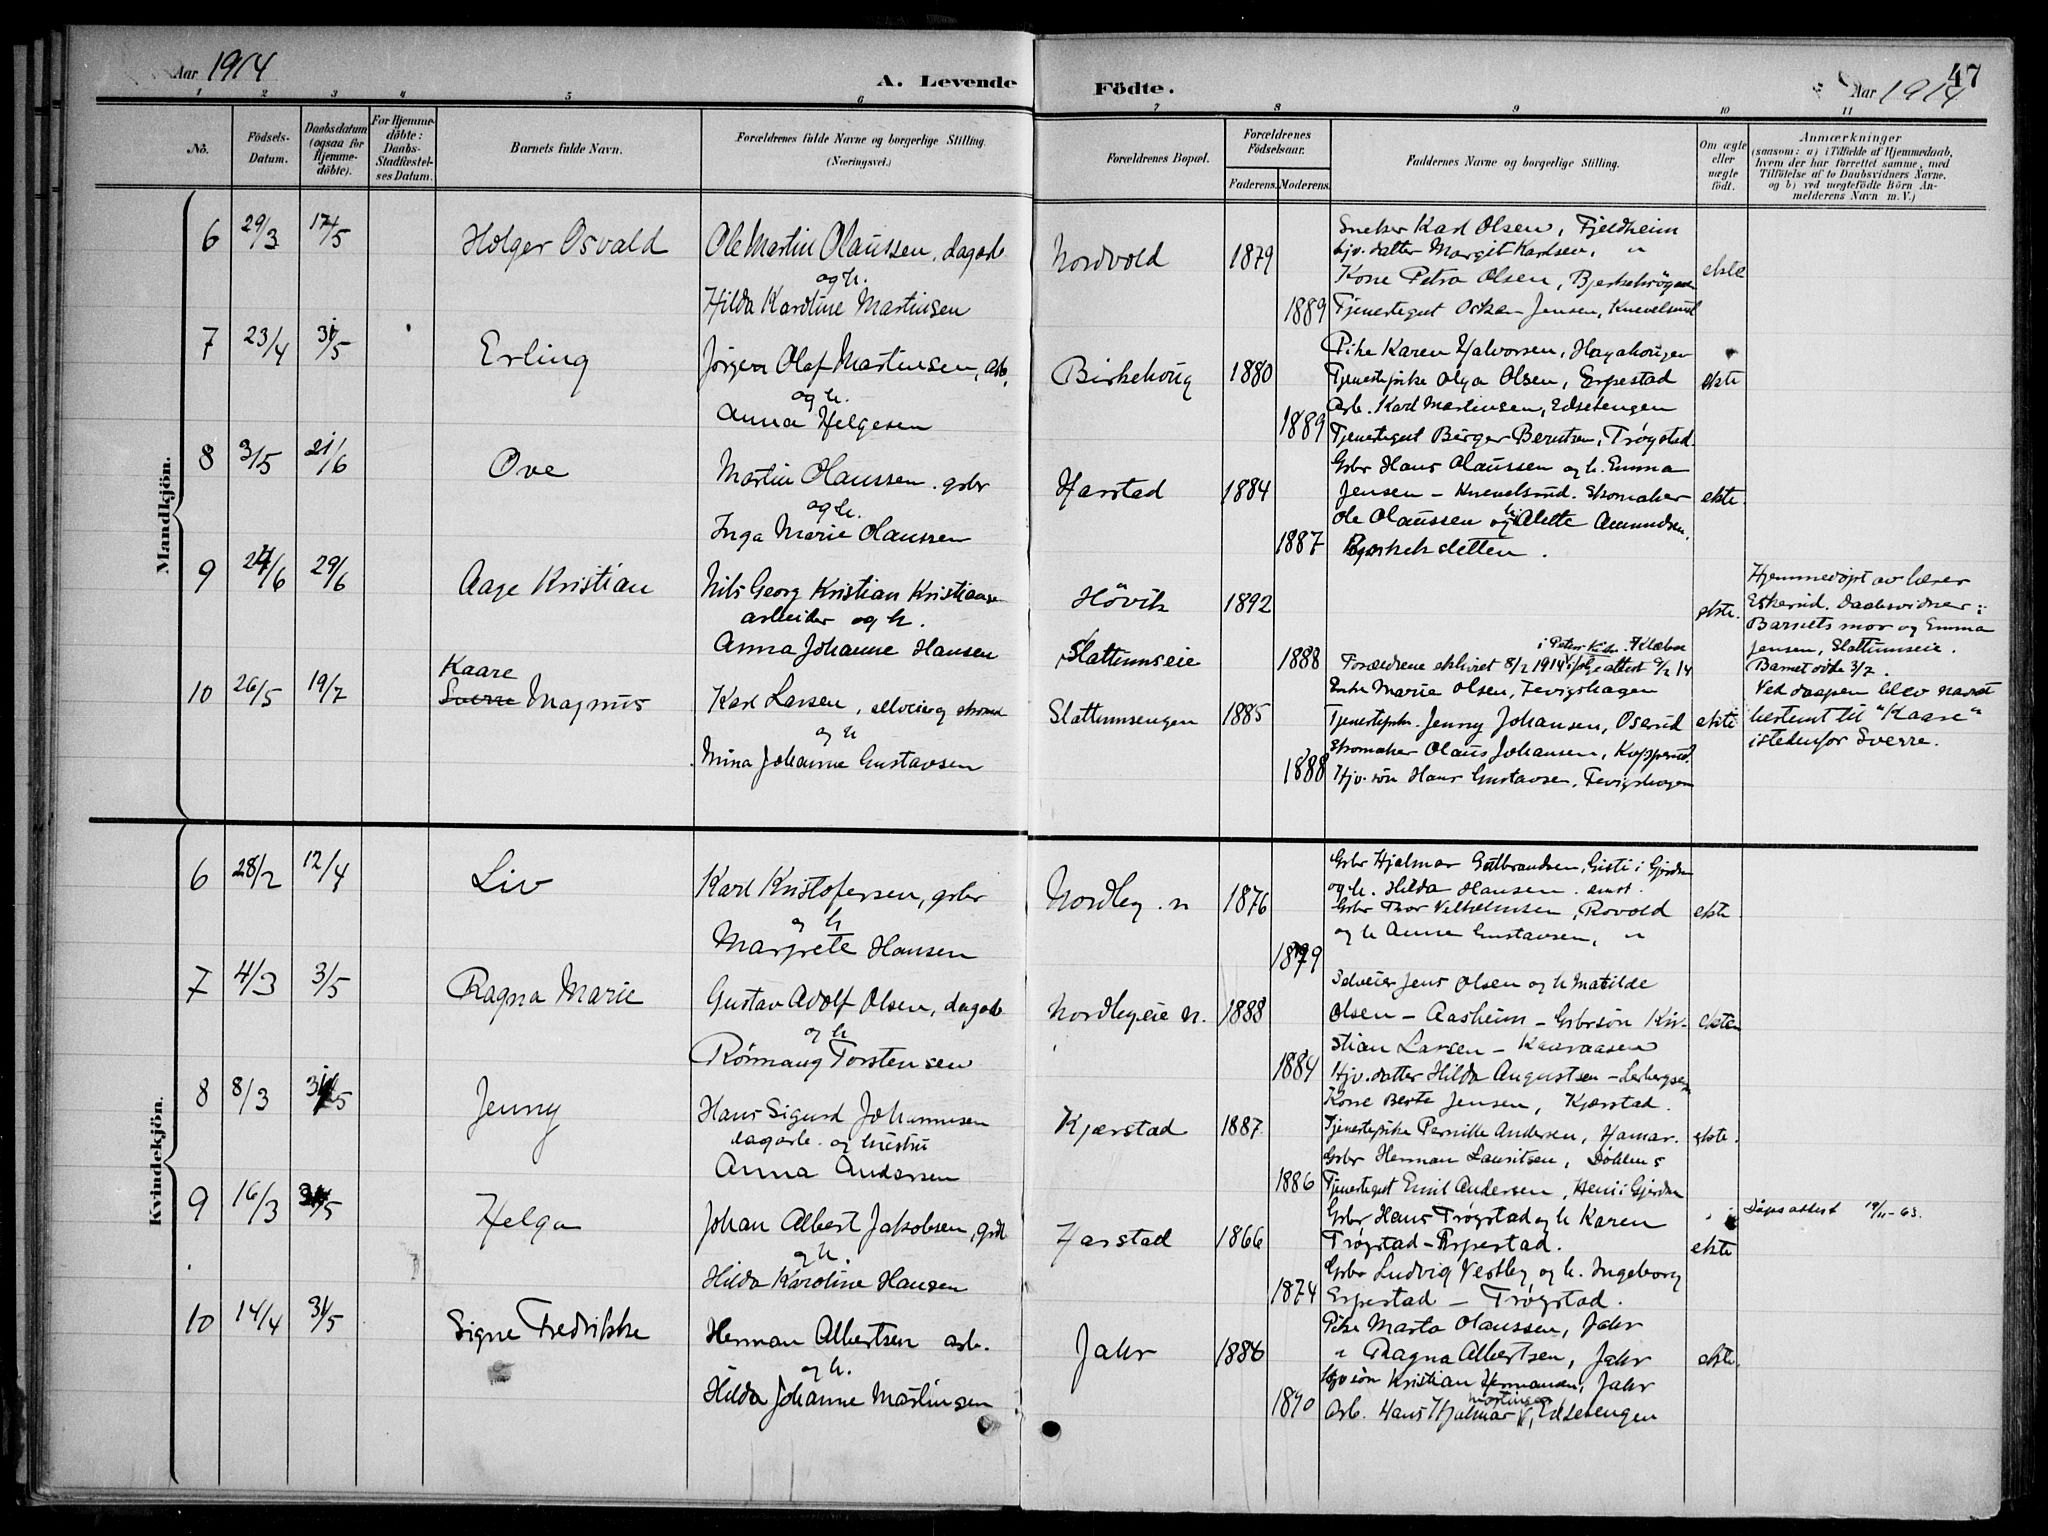 Aar 1914
A. Levende
Födte.
Aar 1914
47
1 2 3 4 5 6 7 8 9 10 11
No.
Födsels-Datum.
Daabsdatum (ogsaa for Hjemme-döbte).
For Hjemme-döbte: Daabs-Stadfæstel-ses Datum.
Barnets fulde Navn.
Forældrenes fulde Navne og borgerlige Stilling.
(Næringsvei.)
Forældrenes Bopæl.
Forældrenes Födselsaar.
Faderens. Moderens.
Faddernes Navne og borgerlige Stilling.
Om ægte eller uægte födt.
Anmærkninger
(saasom: a) i Tilfælde af Hjemmedaab, hvem der har forrettet samme, med Tilföielse af to Daabsvidners Navne. og b) ved uægtefödte Börn Anmelderens Navn m. V.)
Mandkjön.
6 29/3 17/5 Holger Osvald
Ole Martin Olaussen, dagarb
og h.
Hilda Karoline Martinsen
Nordvold 1879
1889
Snekker Karl Olsen, Fjeldheim
hjv. datter Margit Karlsen, "
Kone Petra Olsen,
Tjenestegut Oskar Jensen, Knevelsrud
ekte
7 23/4 31/5 Erling
Jørgen Olaf Martinsen, arb.
og h.
Anna Helgesen
Birkehoug 1880
1889
Pike Karen Halvorsen, Hagahougen
Tjenestepike Olga Olsen, Erpestad
Arb. Karl Martinsen, Edsetengen
Tjenestegut Birger Berntsen, Trøgstad.
ekte
8 3/5 21/6 Ove
Martin Olaussen. gsbr
og h.
Inga Marie Olaussen
Harstad 1884
1887
Gsbr Hans Olaussen og h. Emma
Jensen – Knevelsrud. Skomaker
Ole Olaussen og h. Alette Amundsen,
ekte.
9 24/6 29/6 Aage Kristian
Nils Georg Kristian Kristiansen
arbeider og h.
Anna Johanne Hansen
Høvik 1892
Slattumseie 1888
i Peters Kirke
Forældrene ekteviet 8/2 1914 ifølge attest 9/2 14
ekte.
Hjemmedøpt av lærer
Eskerud. Daabsvidner:
Barnets mor og Emma
Jensen, Slattumseie.
Barnet døde 3/7.
10 26/5 19/7 Kaare
Sverre Magnus
Karl Larsen, selveier og skomak
og h
Mina Johanne Gustavsen
Slattumsengen 1885
1888
Enke Marie Olsen, Fevigshagen
Tjenestepike. Jenny Johansen, Oserud
Skomaker Olaus Johansen, Kopperud.
Hjv. søn Hans Gustavsen, Fevigshagen
ekte
Ved daapen blev navnet
bestemt til "Kaare"
istedenfor Sverre.
Kvindekjön.
6 28/2 12/4 Liv
Karl Kristofersen, gsbr
og h
Margrete Hansen
Nordby. n 1876
1879
Gsbr Hjalmar Gulbrandsen, Gisti i Gjerdrum
og h. Hilda Hansen.
Gsbr Thor Vilhelmsen, Rovold
og h Anna Gustavsen, "
ekte.
7 4/3 3/5 Ragna Marie
Gustav Adolf Olsen, dagarb
og h
Rønnaug Torstensen
Nordbyeie n. 1888
1884
Selveier Jens Olsen og h Matilde
Olsen – Aasheim – Gsbrsøn Kri-
stian Larsen – Kaaraasen
Hjv. datter Hilda Augustsen –
ekte
8 8/3 31/5 Jenny
Hans Sigurd Johannesen
dagarb. og hustru
Anna Andersen
Kjærstad 1887
1886
Kone Berte Jensen, Kjærstad.
Tjenestepike Pernille Andersen, Hamar.
Gsbr Herman Lauritsen, Døhlen s
Tjenestegut Emil Andersen, Heni i Gjerdrum
ekte.
9 16/3 31/5 Helga
Johan Albert Jakobsen, gsbr
og h.
Hilda Karoline Hansen
Harstad 1866
1874
Gsbr Hans Trøgstad og h Karen
Trøgstad – Erpestad.
Gsbr Ludvig Vestby og h. Ingeborg
Erpestad – Trøgstad.
ekte
Døpsattest 19/11-63.
10 14/4 31/5 Signe Fredrikke
Herman Albertsen arb.
og h.
Hilda Johanne Martinsen
Jahr 1886
1890
Pike Marta Olaussen, Jahr
" Ragna Albertsen, Jahr
Hjv søn Kristian Hermansen, Jahr
Martinsen
Arb. Hans Hjalmar V, Edsetengen
ekte.